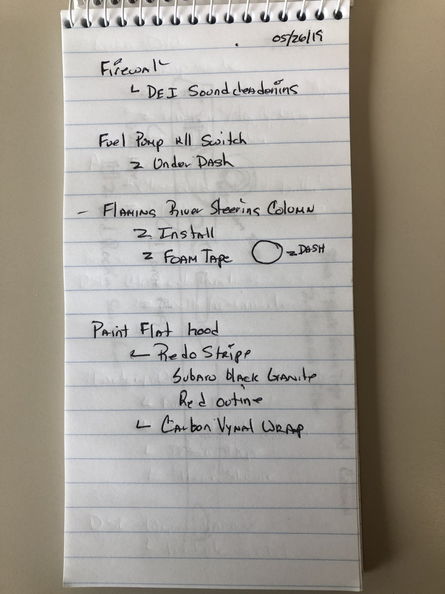 05/26/19
Firewall
DEI Sounddeadening
Fuel Pump Kill Switch
Under Dash
- Flaming River Steering Column
Install
Foam Tape DASH
Paint Flat hood
Redo Stripe
Subaru black Granite
Red outine
Carbon Vynal Wrap